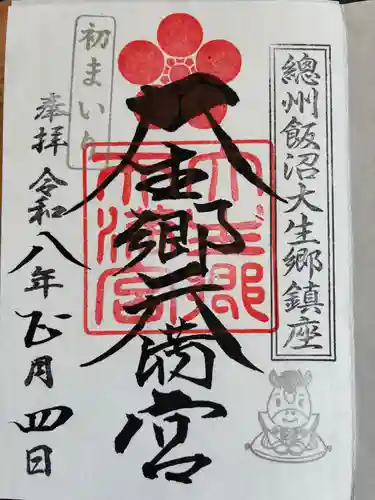 總州飯沼大生郷鎮座
大生郷天満宮
大生郷天満宮
初まいり
奉拝
令和八年正月四日